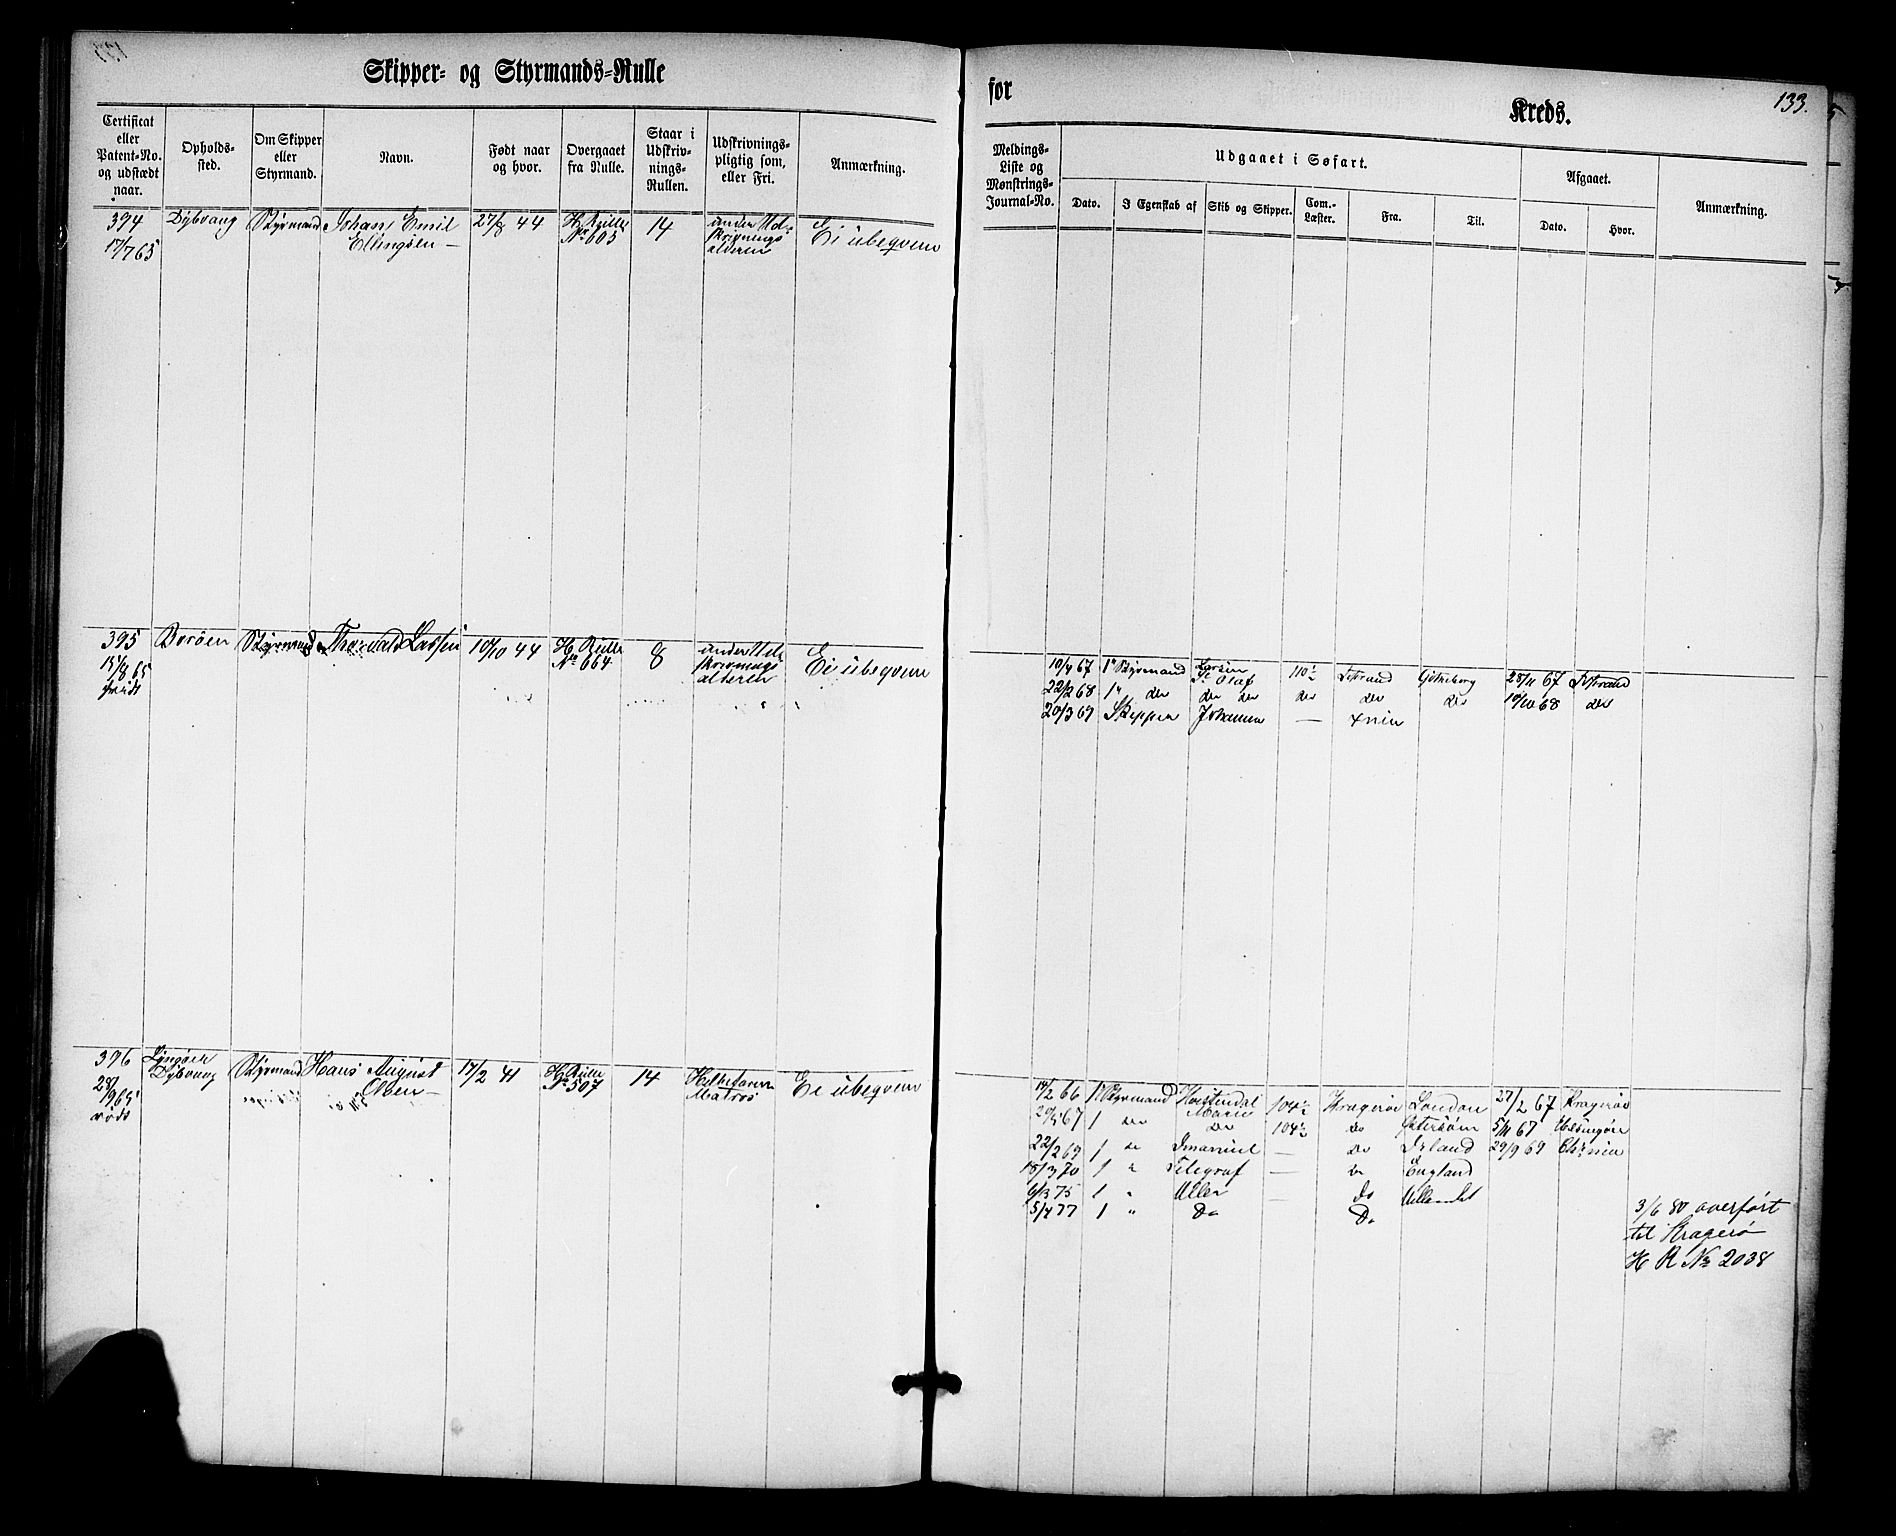 Skipper- og Styrmands-Rulle
for
Kreds.
133.
Certificat eller Patent-No. og udstædt naar.
Opholds-sted.
Om Skipper eller Styrmand.
Navn.
Født naar og hvor.
Overgaaet fra Rulle.
Staar i Udskriv-nings-Rullen.
Udskrivnings-pligtig som, eller Fri.
Anmærkning.
Meldings-Liste og Mønstrings-Journal-No.
Udgaaet i Søfart.
Afgaaet.
Anmærkning.
Dato.
I Egenskab af
Skib og Skipper.
Com.-Læster.
Fra.
Til.
Dato.
Hvor.
394 Dybvaag Styrmand Johan Emil 27/8 44 H Rulle 14 under Ud- Ei ubeqvem
17/7 65 Ellingsen — No 605 skrivnings
alderen
395 Borøen Styrmand Thorvald Lassen 10/10 44 H. Rulle 8 under Uds Ei ubeqvem
15/8 65 No 664 skrivnings
alderen
10/4 67 1ste Styrmand Olaf 110 Gøtheborg 28/11 67
22/2 68 1 do do do do do do 10/10 68 do
20/3 69 Skipper Johanna —
396 Lyngøer Styrmand Hans August 17/2 41 H. Rulle 14 Helbefaren Ei ubeqvem
28/9 65 Dybvaag Olsen — No 507 Matros
14/2 66 1 Styrmand 104 Kragerø London 27/2 67 Kragerø
67 1 do Marie do 104 do 5/11 67 Helsingør
22/2 69 1 do Imanuel — do Irland 29/9 69
18/3 70 1 " Telegraf — do England
6/3 75 1 " — do
5/4 77 1 " Do Do
3/6 80 overført
til Kragerø
H R No 2038